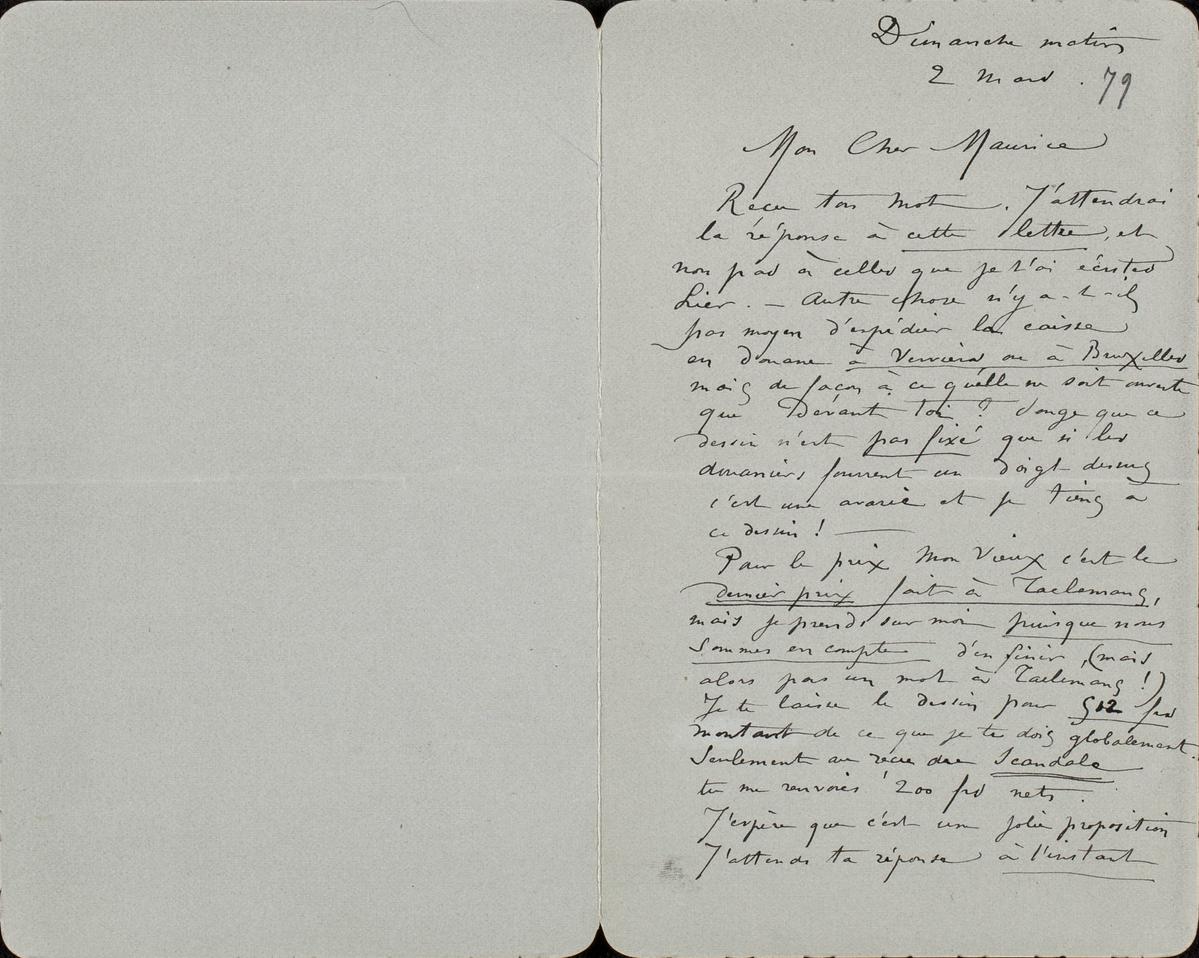 Dimanche matin
2 Mars . 79
Mon Cher Maurice
Reçu ton mot . J'attendrai
la réponse à cette lettre, et
non pas à celles que je t'ai écrites
hier . — Autre chose n'y a-t-il
pas moyen d'expédier la caisse
en douane à Verviers ou à Bruxelles
mais de façon à ce qu'elle ne soit ouverte
que devant toi ? Songe que ce
dessin n'est pas fixé que si les
douaniers fourrent un doigt dessus
c'est une avarie et je tiens à
ce dessin ! —
Pour le prix Mon Vieux c'est le
dernier prix fait à Taelemans,
mais je prends sur moi puisque nous
sommes en compte d'en finir, (mais
alors pas un mot à Taelemans !)
Je te laisse le dessin pour 512 frs
montant de ce que je te dois globalement.
Seulement au reçu du Scandale
tu me renvoies 200 frs nets .
J'espère que c'est une jolie proposition
J'attends ta réponse à l'instant